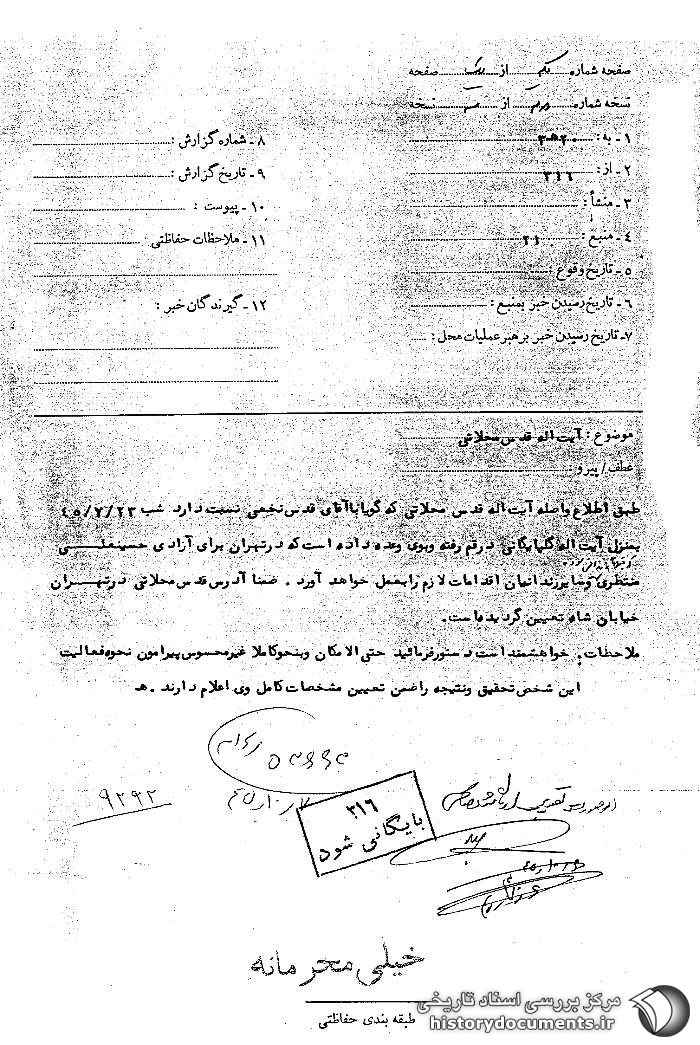 صفحه شماره یکم از یک صفحه
نسخه شماره از نسخه
۱ - به : ۳۰۵۲۰
۲ - از : ۳۱۶
۳ - منشأ :
۴ - منبع : ۲۱
۵ - تاریخ وقوع :
۶ - تاریخ رسیدن خبر بمنبع :
۷ـ تاریخ رسیدن خبر برهبر عملیات محل :
۸ ـ شماره گزارش :
۹ - تاریخ گزارش :
۱۰ - پیوست :
۱۱ - ملاحظات حفاظتی :
۱۲ - گیرندگان خبر :
موضوع : آیت اله قدس محلاتی
عطف / پیرو :
طبق اطلاع واصله آیت اله قدس محلاتی که گویا با آقای قدس نخعی نسبت دارد شب ۴۵/۷/۲۳
بمنزل آیت اله گلپایگانی در قم رفته و بوی وعده داده است که در تهران برای آزادی حسینعلی
منتظری و سایر زندانیان اقدامات لازم را بعمل خواهد آورد . ضمنا آدرس قدس محلاتی در تهران
خیابان شاه تعیین گردیده است.
ملاحظات: خواهشمند است دستور فرمائید حتی الامکان و بنحو کاملا غیر محسوس پیرامون نحوه فعالیت
این شخص تحقیق و نتیجه را ضمن تعیین مشخصات کامل وی اعلام دارند . هـ
۹۲۹۲
۳۱۶
بایگانی شود
خیلی محرمانه
طبقه بندی حفاظتی
مرکز بررسی اسناد تاریخی
historydocuments.ir